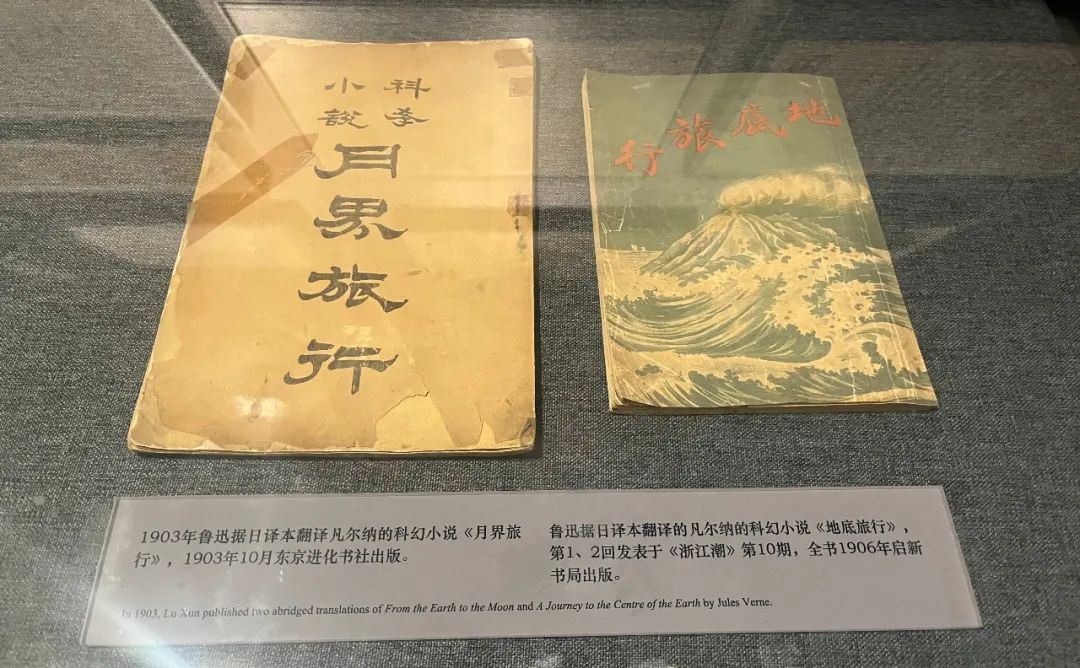 科學
小說
月界旅行
地底旅行
1903年鲁迅据日译本翻译凡尔纳的科幻小说《月界旅
行》，1903年10月东京进化书社出版。
鲁迅据日译本翻译的凡尔纳的科幻小说《地底旅行》，
第1、2回发表于《浙江潮》第10期，全书1906年启新
书局出版。
In 1903, Lu Xun published two abridged translations of From the Earth to the Moon and A Journey to the Centre of the Earth by Jules Verne.